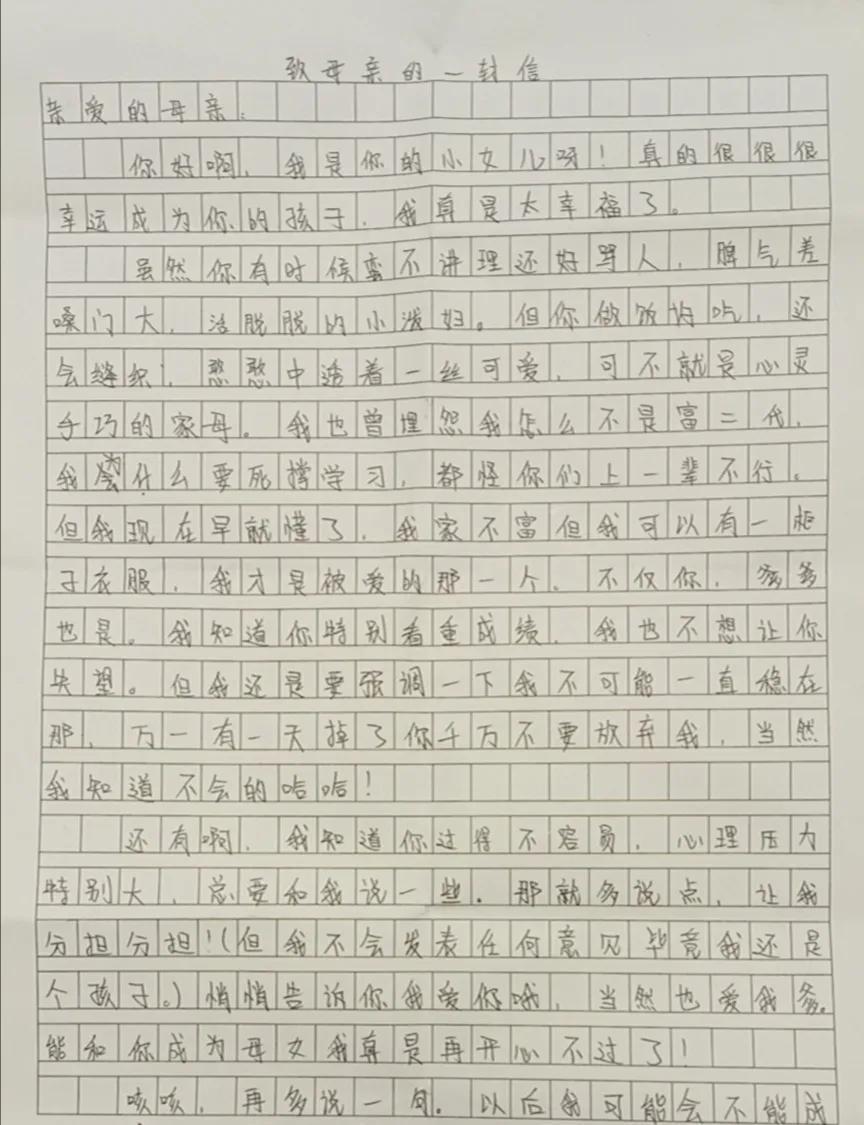 致母亲的一封信
亲爱的母亲：
你好啊，我是你的小女儿呀！真的很很很
幸运成为你的孩子，我真是太幸福了。
虽然你有时候蛮不讲理还好骂人，脾气差
嗓门大，活脱脱的小泼妇。但你做饭好吃，还
会缝织，憨憨中透着一丝可爱，可不就是心灵
手巧的家母。我也曾埋怨我怎么不是富二代，
我为什么要死撑学习，都怪你们上一辈不行。
但我现在早就懂了，我家不富但我可以有一柜
子衣服，我才是被爱的那一个。不仅你，爸爸
也是。我知道你特别看重成绩，我也不想让你
失望。但我还是要强调一下我不可能一直稳在
那，万一有一天掉了你千万不要放弃我，当然
我知道不会的哈哈！
还有啊，我知道你过得不容易，心理压力
特别大，总要和我说一些。那就多说点，让我
分担分担！（但我不会发表任何意见毕竟我还是
个孩子。）悄悄告诉你我爱你哦，当然也爱我爸。
能和你成为母女我真是再开心不过了！
咳咳，再多说一句。以后我可能会不能成